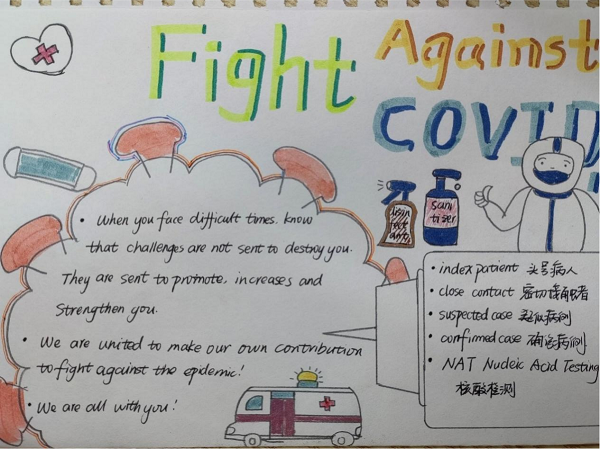 Fight Against
COVID
When you face difficult times. know
that challenges are not sent to destroy you.
They are sent to promote, increases and
strengthen you.
We are united to make our own contribution
to fight against the epidemic!
We are all with you!
sani
tiser
index patient 头号病人
close contact 密切接触者
suspected case 疑似病例
confirmed case 确诊病例
NAT Nucleic Acid Testing
核酸检测